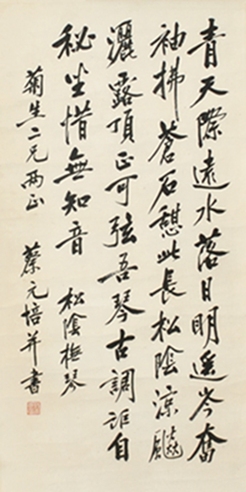 青天際遠水落日明遥岑奮
袖拂蒼石憩此長松陰涼飇
灑露頂正可弦吾琴古調詎自
秘坐惜無知音 松陰橅琴
菊生二兄兩正 蔡元培并書